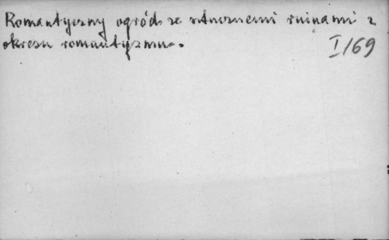 Romantyczny ogród ze sztucznemi ruinami z
okresu romantyzmu.
I/69